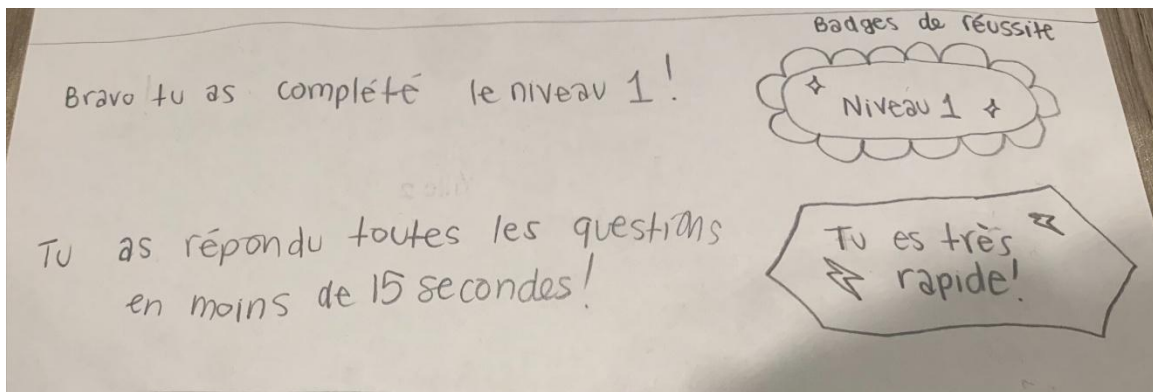 Badges de réussite
Bravo tu as complété le niveau 1!
Niveau 1
Tu as répondu toutes les questions
en moins de 15 secondes!
Tu es très
rapide!